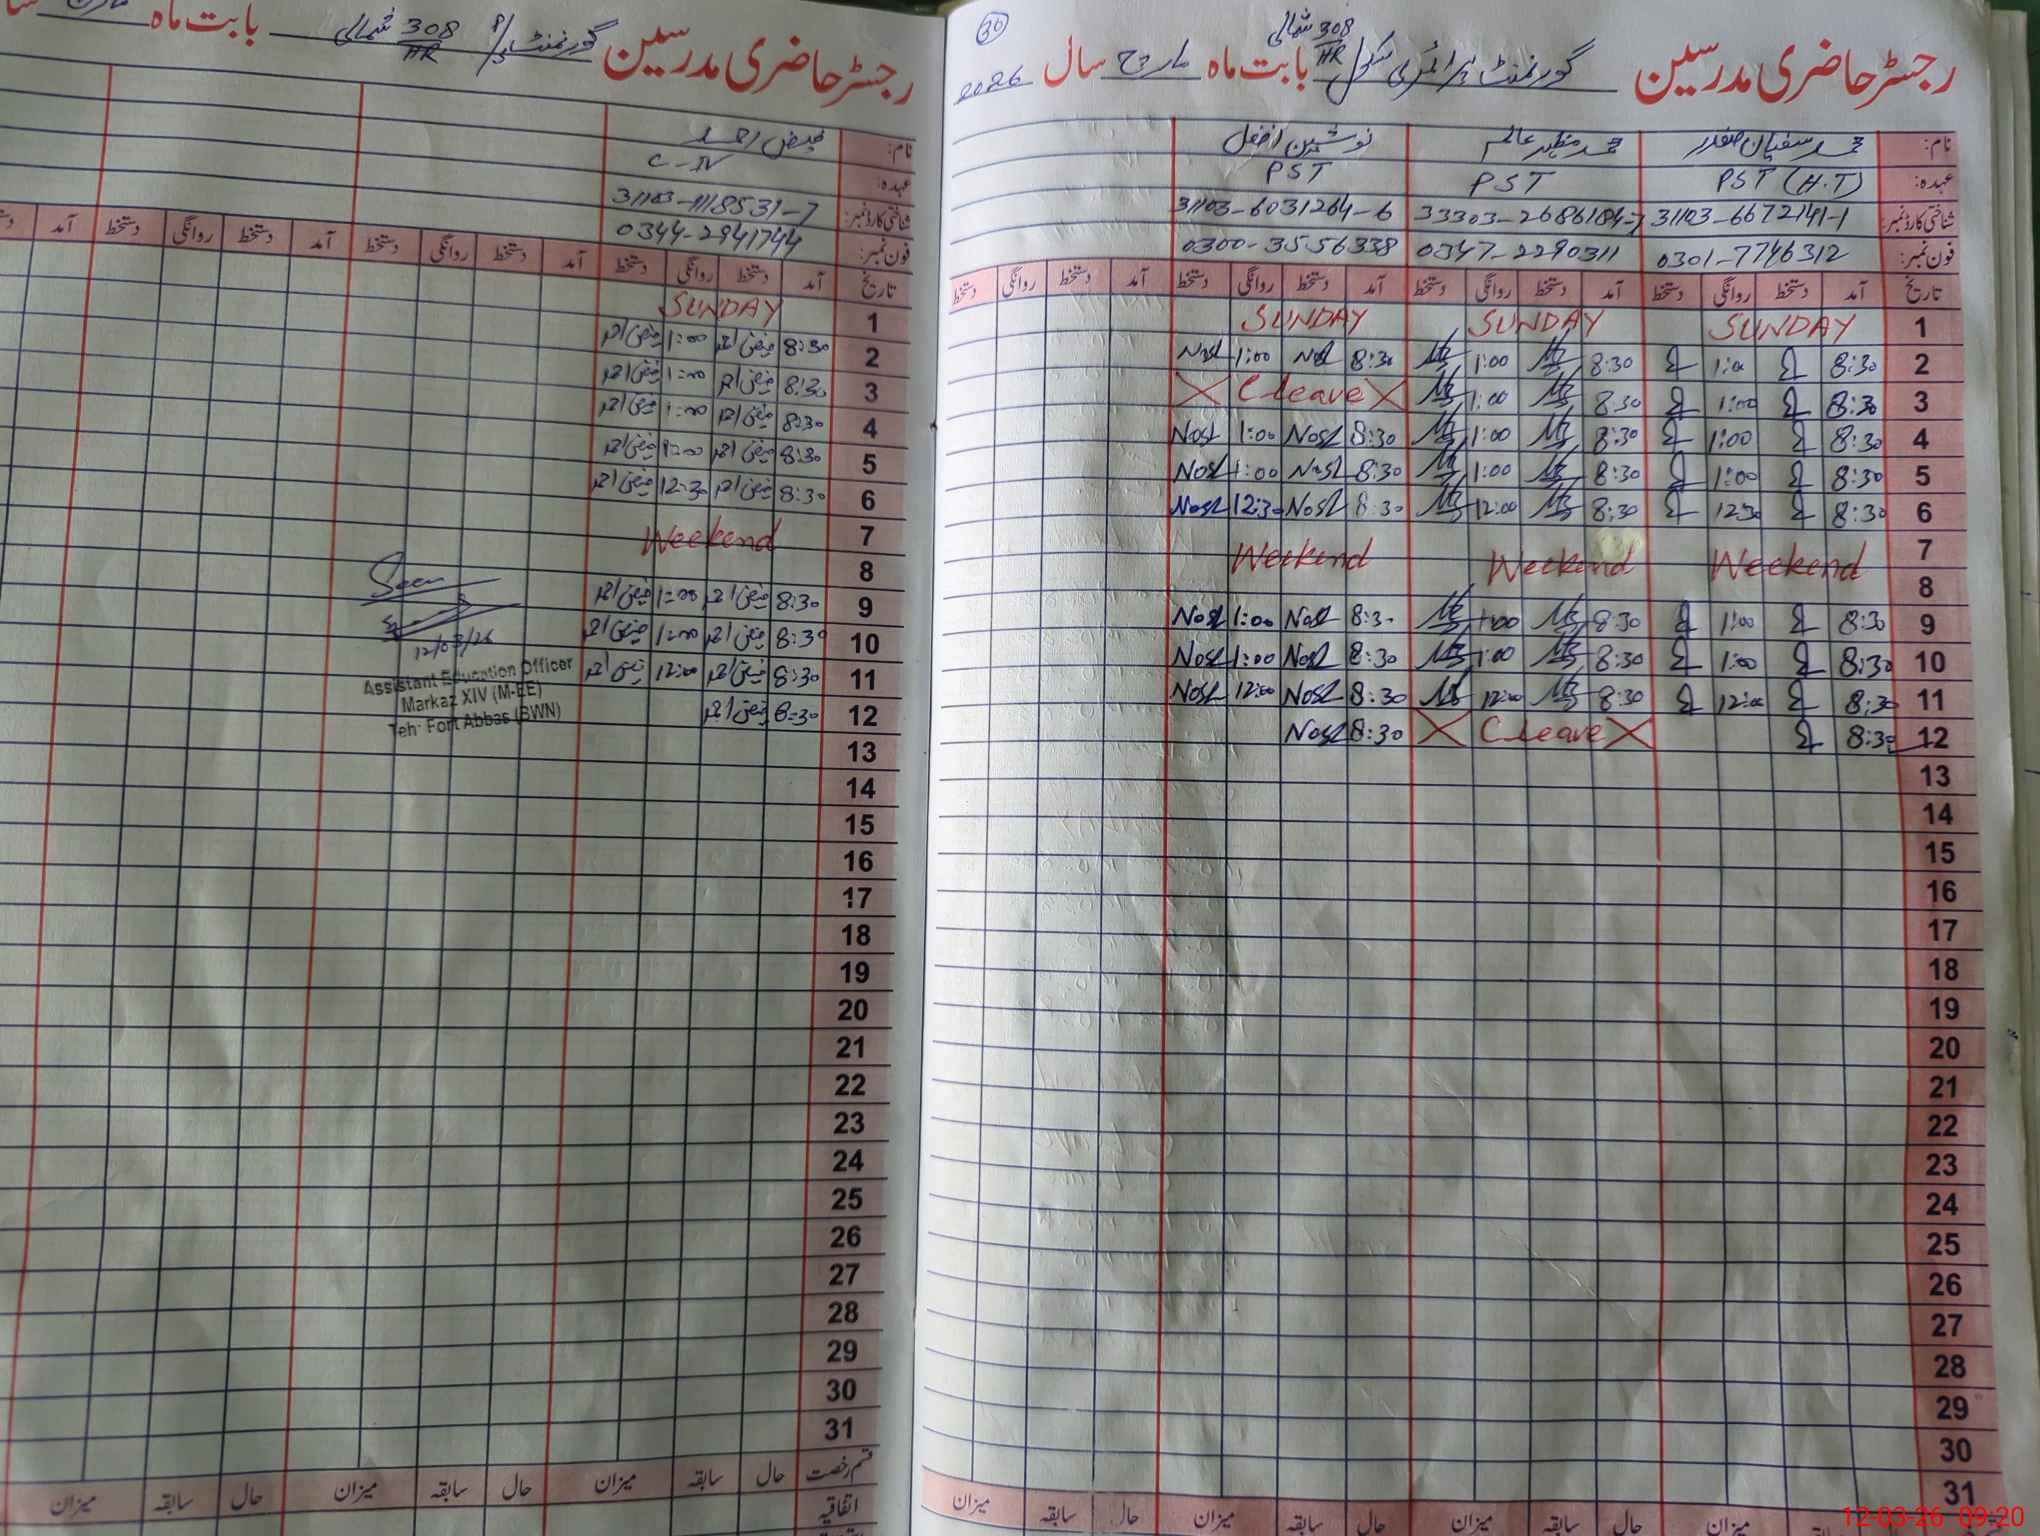 رجسٹر حاضری مدرسین گورنمنٹ پرائمری سکول 308/HR شمالی بابت ماہ مارچ سال 2026
30
نام: محمد سفیان صفدر محمد مظہر عالم نوشین افضل
عہدہ: PST (H.T) PST PST
شناختی کارڈ نمبر: 31103-6672141-1 33303-2686184-7 31103-6031264-6
فون نمبر: 0301-7746312 0347-2290311 0300-3556338
تاریخ آمد دستخط روانگی دستخط آمد دستخط روانگی دستخط آمد دستخط روانگی دستخط آمد دستخط روانگی دستخط
1 SUNDAY SUNDAY SUNDAY
2 8:30 1:00 8:30 1:00 8:30 Nosh 1:00 Nosh
3 8:30 1:00 8:30 1:00 X C leave X
4 8:30 1:00 8:30 1:00 8:30 Nosh 1:00 Nosh
5 8:30 1:00 8:30 1:00 8:30 Nosh 1:00 Nosh
6 8:30 12:30 8:30 12:00 8:30 Nosh 12:30 Nosh
7 Weekend Weekend Weekend
8
9 8:30 1:00 8:30 1:00 8:30 Nosh 1:00 Nosh
10 8:30 1:00 8:30 1:00 8:30 Nosh 1:00 Nosh
11 8:30 12:00 8:30 12:00 8:30 Nosh 12:00 Nosh
12 8:30 X C leave X 8:30 Nosh
13
14
15
16
17
18
19
20
21
22
23
24
25
26
27
28
29
30
31
حال سابقہ میزان حال سابقہ میزان حال سابقہ میزان
رجسٹر حاضری مدرسین گورنمنٹ 308/HR شمالی بابت ماہ
نام: فیض احمد
عہدہ: C-IV
شناختی کارڈ نمبر: 31103-1118531-7
فون نمبر: 0344-2941744
تاریخ آمد دستخط روانگی دستخط آمد دستخط روانگی دستخط آمد دستخط روانگی دستخط آمد
1 SUNDAY
2 8:30 فیض احمد 1:00 فیض احمد
3 8:30 فیض احمد 1:00 فیض احمد
4 8:30 فیض احمد 1:00 فیض احمد
5 8:30 فیض احمد 1:00 فیض احمد
6 8:30 فیض احمد 12:30 فیض احمد
7 Weekend
8
9 8:30 فیض احمد 1:00 فیض احمد
10 8:30 فیض احمد 1:00 فیض احمد
11 8:30 فیض احمد 12:00 فیض احمد
12 8:30 فیض احمد
13
14
15
16
17
18
19
20
21
22
23
24
25
26
27
28
29
30
31
Seen
12/03/26
Assistant Education Officer
Markaz XIV (M-EE)
Teh: Fort Abbas (BWN)
قسم رخصت حال سابقہ میزان حال سابقہ میزان حال سابقہ میزان
اتفاقیہ
12-03-26 09:20